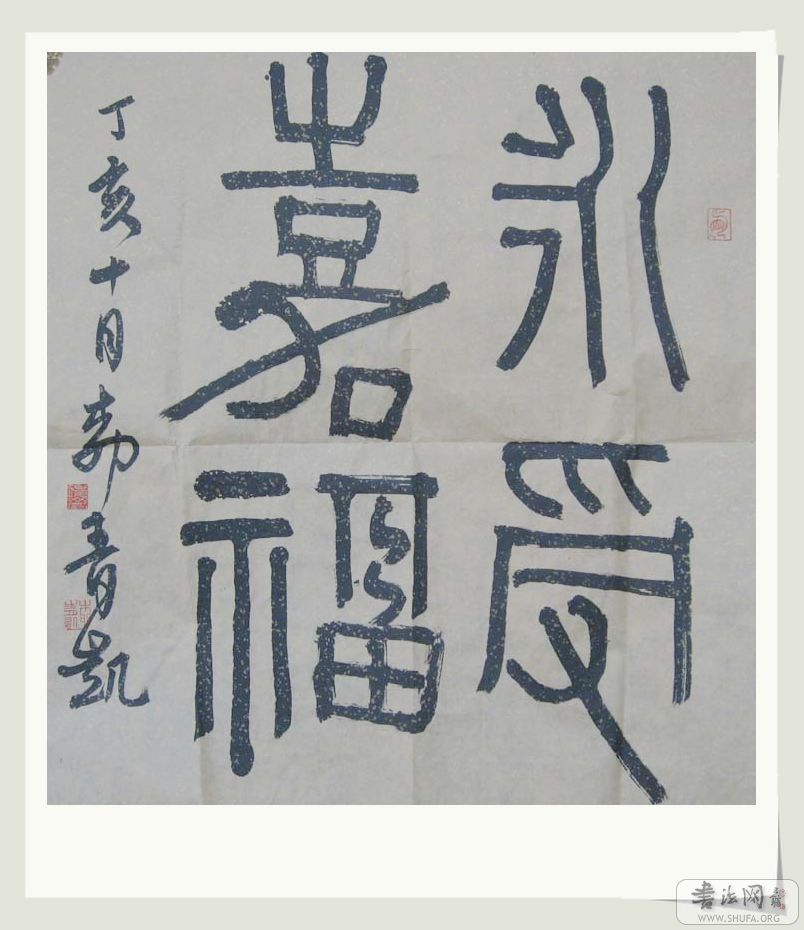 永受
嘉福
丁亥十月勃青凱
書法网
WWW.SHUFA.ORG